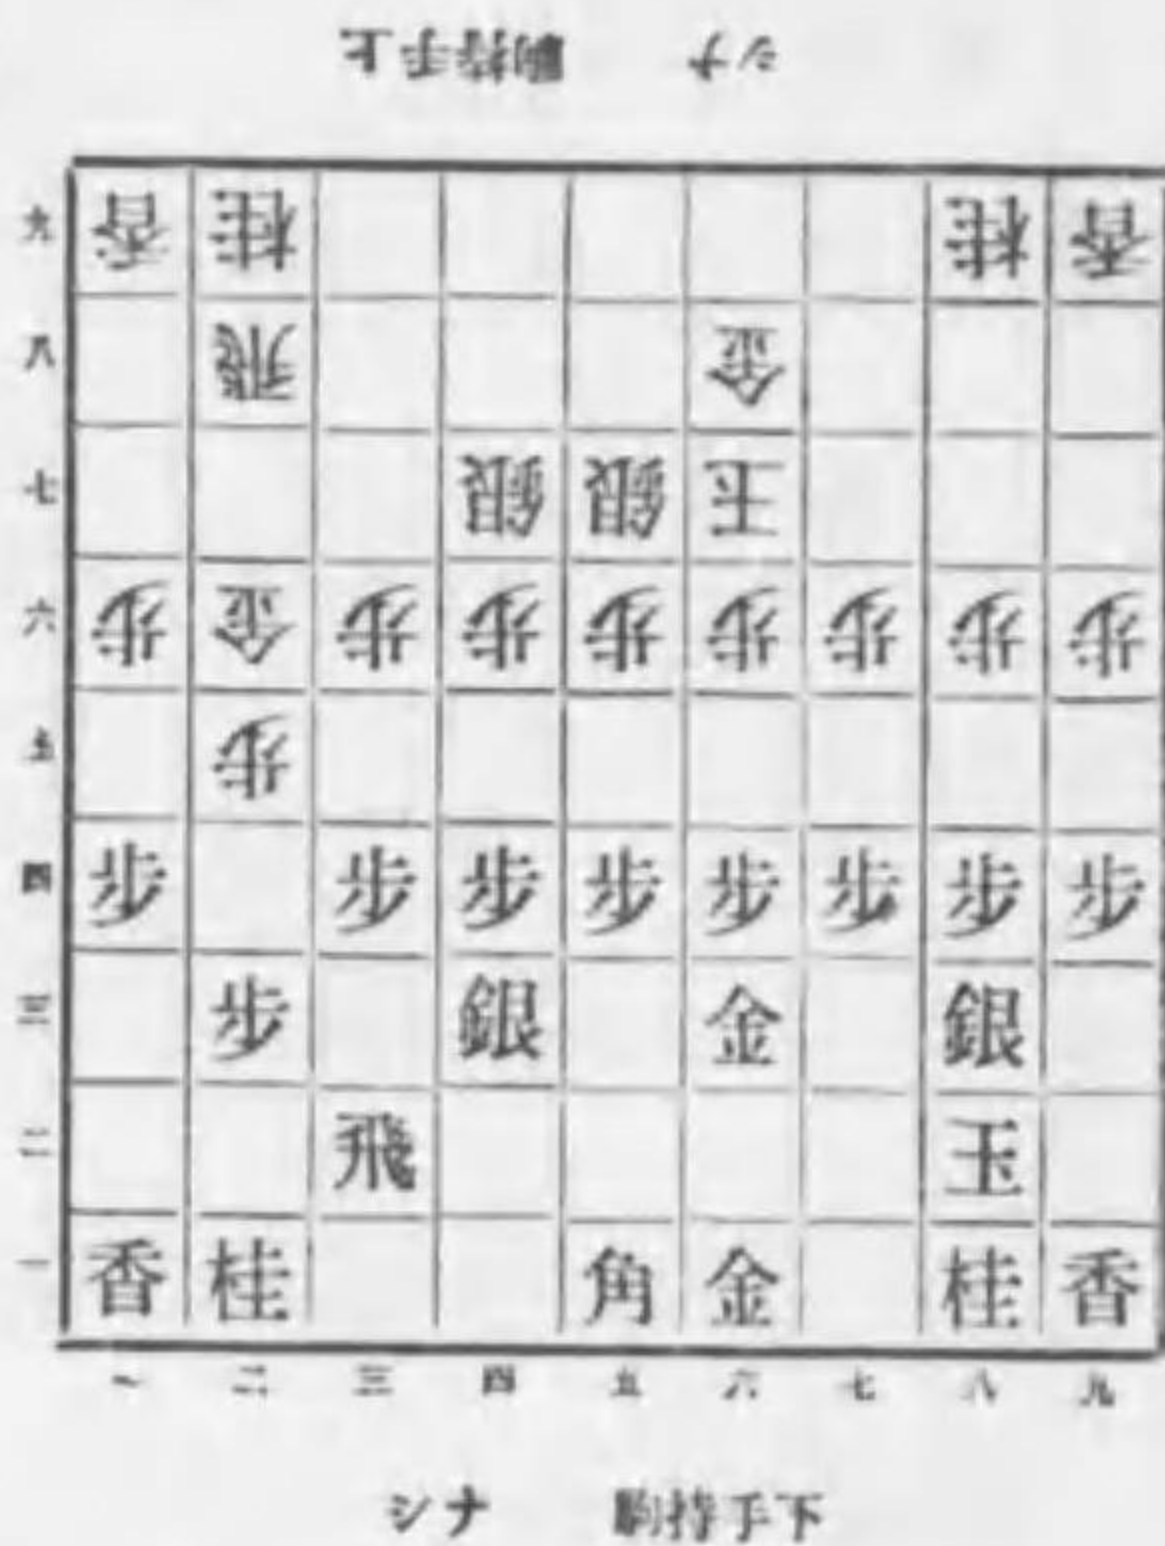 上手持駒 ナシ
九 香 桂 桂 香
八 飛 金
七 銀 銀 玉
六 歩 金 歩 歩 歩 歩 歩 歩 歩
五 歩
四 歩 歩 歩 歩 歩 歩 歩 歩
三 歩 銀 金 銀
二 飛 玉
一 香 桂 角 金 桂 香
一 二 三 四 五 六 七 八 九
下手持駒 ナシ